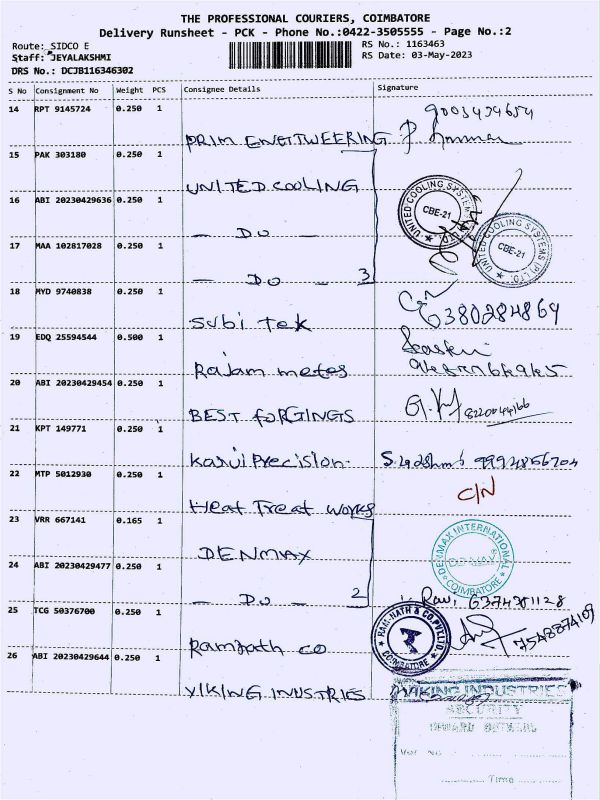 THE PROFESSIONAL COURIERS, COIMBATORE
Delivery Runsheet - PCK - Phone No.:0422-3505555 - Page No.:2
Route: SIDCO E RS No.: 1163463
Staff: JEYALAKSHMI RS Date: 03-May-2023
DRS No.: DCJB116346302
S No Consignment No Weight PCS Consignee Details Signature
14 RPT 9145724 0.250 1
PRIM ENGITWEERING
15 PAK 303180 0.250 1
UNITED COOLING
16 ABI 20230429636 0.250 1
— DO —
UNITED COOLING SYSTEMS
CBE-21
17 MAA 102817028 0.250 1
— DO — 3
UNITED COOLING SYSTEMS (P) LTD.
CBE-21
18 MYD 9740838 0.250 1
Subi Tek 6380284869
19 EDQ 25594544 0.500 1
Rajam metes
20 ABI 20230429454 0.250 1
BEST forGINGS 8220044166
21 KPT 149771 0.250 1
Karvi Precision.
22 MTP 5012930 0.250 1
C/N
Heat Treat works
23 VRR 667141 0.165 1
DENMAX
DENMAX INTERNATIONAL
COIMBATORE
24 ABI 20230429477 0.250 1
— DO — 2
Ravi 6374381128
25 TCG 50376700 0.250 1
Ramnath co
RAM-NATH & CO PVT.LTD.
COIMBATORE
7548874109
26 ABI 20230429644 0.250 1
VIKING INDUSTRIES
VIKING INDUSTRIES
SECURITY
Time